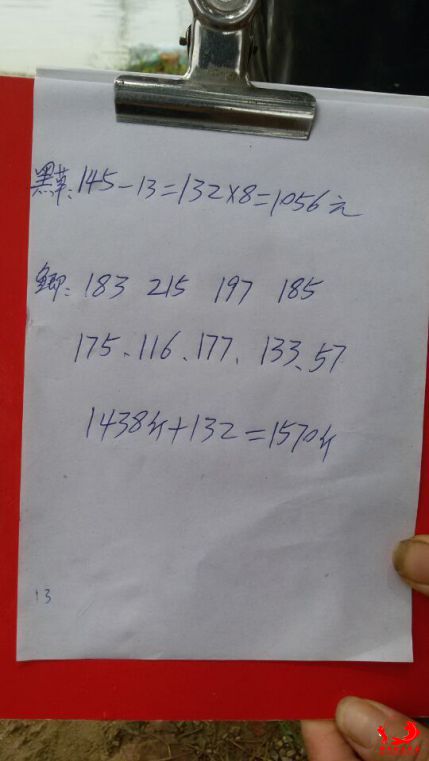 黑草:145-13=132×8=1056元
鲫:183 215 197 185
175、116、177、133、57
1438斤+132=1570斤
13